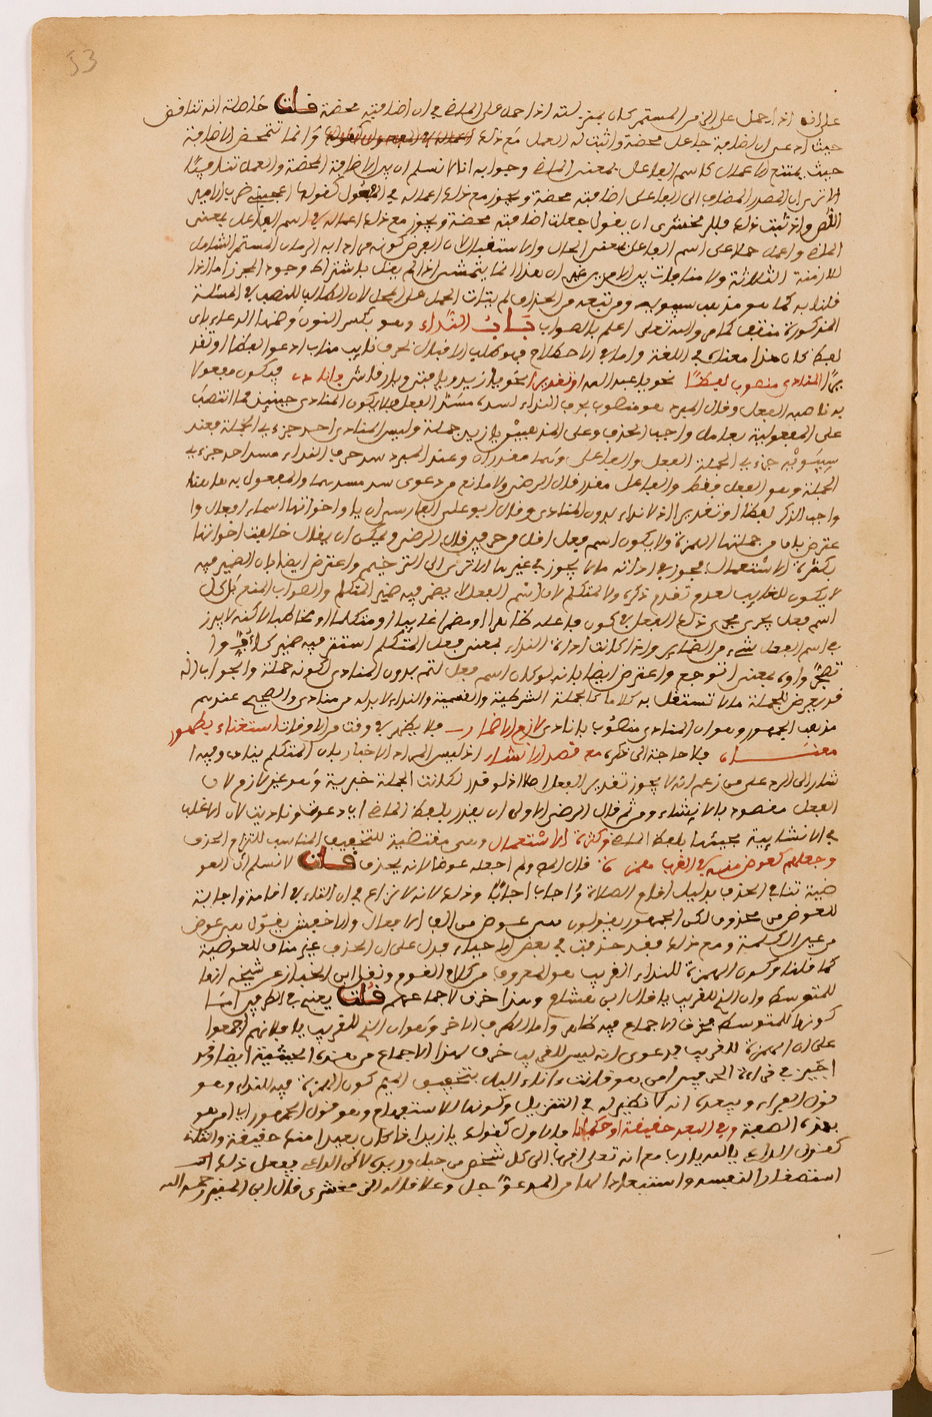 53
على انه اذا حمل على الزمن المستمر كان بمنزلته اذا حمل على الماضي في ان اضافته محضة قلت حاصله انه تناقض
حيث ادعى ان اضافة جاعل محضة واثبت له العمل مع ذلك وانما تتمحض الاضافة
حيث يمتنع الاعمال كاسم الفاعل بمعنى الماضي وجوابه انا لا نسلم ان بين الاضافة المحضة والعمل تنافيا
الا ترى ان المصدر المضاف الى الفاعل اضافته محضة ويجوز مع ذلك اعماله في المفعول كقولك اعجبني ضرب الامير
اللص واذا ثبت ذلك فللزمخشري ان يقول جعلت اضافته محضة ويجوز مع ذلك اعماله في اسم الفاعل بمعنى
الماضي
للازمنة الثلاثة ولا منافاة بين الامرين
قلنا به كما هو مذهب سيبويه ومن تبعه من الحذاق لم يتأت الحمل على المحل لان الطالب للنصب في المسئلة
المذكورة منتف كما مر والله تعالى اعلم بالصواب باب النداء وهو بكسر النون وضمها الدعاء باي
لفظ كان هذا معناه في اللغة واما في الاصطلاح فهو طلب الاقبال بحرف نايب مناب ادعو لفظا او تقد
يرا المنادى منصوب لفظا نحو يا عبد الله او تقديرا نحو يا زيد ويا فتى ويا رقاش بانادي فيكون مفعولا
به ناصبه الفعل وقال المبرد هو منصوب بحرف النداء لسده مسد الفعل فلا يكون المنادى حينئذ مما انتصب
على المفعولية بعامل واجب الحذف وعلى المذهبين يا زيد جملة وليس المنادى احد جزءي الجملة فعند
سيبويه جزءي الجملة الفعل والفاعل وهما مقدران وعند المبرد سد حرف النداء مسد احد جزءي
الجملة وهو الفعل فقط والفاعل مقدر قال الرضي ولا مانع من دعوى سد مسدهما والمفعول به هاهنا
واجب الذكر لفظا او تقديرا اذ لا نداء بدون المنادى وقال ابو علي الفارسي ان يا واخواتها اسماء افعال وا
عترض بان من جملتها الهمزة ولا يكون اسم فعل اقل من حرفين قال الرضي ويمكن ان يقال خالفت اخواتها
بكثرة الاستعمال فجوز في اداته ما لا يجوز في غيرها الا ترى الى الترخيم واعترض ايضا بان الضمير فيه
لا يكون للغايب لعدم تقدم ذكره ولا للمتكلم لان اسم الفعل لا يضمر فيه ضمير المتكلم والصواب المنع بل كل
اسم فعل يجري مجرى ذلك الفعل في كون فاعله ظاهرا او مضمرا غايبا او متكلما او مخاطبا لكنه لا يبرز
في اسم الفعل شيء من الضماير وان كانت اداة النداء بمعنى فعل المتكلم استتر فيه ضمير كأفّ وا
تضجر واوه بمعنى اتوجع واعترض ايضا بانه لو كان اسم فعل لتم بدون المنادى لكونه جملة والجواب انه
قد يعرض للجملة ما لا تستقل به كلاما كالجملة الشرطية والقسمية والنداء لا بد له من منادى والصحيح عندهم
مذهب الجمهور وهو ان المنادى منصوب بانادي لازم الاضمار فلا يظهر في وقت من الاوقات استغناء بظهور
معناه فلا حاجة الى ذكره مع قصد الانشاء اذ ليس المراد الاخبار بان المتكلم ينادي وفيه ا
شارة الى الرد على من زعم انه لا يجوز تقدير الفعل اصلا اذ لو قدر لكانت الجملة خبرية وهو غير لازم لان
الفعل مقصود به الانشاء ومن ثم قال الرضي الاولى ان يقدر بلفظ الماضي اي دعوت وناديت لان الاغلب
في الانشايية مجيئها بلفظ الماضي وكثرة الاستعمال وهي مقتضية للتخفيف المناسب للتزام الحذف
وجعلهم كعوض منه في القرب همزة قال المص ولم اجعله عوضا لانه يحذف قلت لا نسلم ان العو
ضية تنافي الحذف بدليل اقام الصلاة واجاب اجابا وذلك لانه لا نزاع في ان التاء في اقامة واجابة
للعوض من محذوف لكن الجمهور يقولون هي عوض من الف الافعال والاخفش يقول هي عوض
من عين الكلمة ومع ذلك فقد حذفت في بعض الاحيان فدل على ان الحذف غير مناف للعوضية
كما قلنا وكون الهمزة للنداء القريب هو المعروف من كلام القوم ونقل ابن الخباز عن شيخه انها
للمتوسط وان الذي للقريب يا قال ابن هشام وهذا خرق لاجماعهم قلت يعني في الطرفين اما
كونها للمتوسط فخرق الاجماع فيه ظاهر واما الطرف الاخر وهو ان الذي للقريب يا فلانهم اجمعوا
على ان الهمزة للقريب فدعوى انه ليس للقريب خرق لهذا الاجماع من هذه الحيثية ايضا وقد
اجيز في قراءة الحرميين امن هو قانت اناء الليل بتخفيف الميم كون الهمزة فيه للنداء وهو
قول الفراء ويبعده انه لا نظير له في التنزيل وكونها للاستفهام وهو قول الجمهور
بهذه الصفة وفي البعد حقيقة او حكما فالاول كقولك يا زيد اذا كان بعيدا منك حقيقة والثاني
كقول الداعي يا الله يا رب مع انه تعالى اقرب الى كل شخص من حبل وريده لكن الداعي يفعل ذلك
استصغارا لنفسه واستبعادا لها من المدعو جل وعلا قاله الزمخشري قال ابن المنير رحمه الله